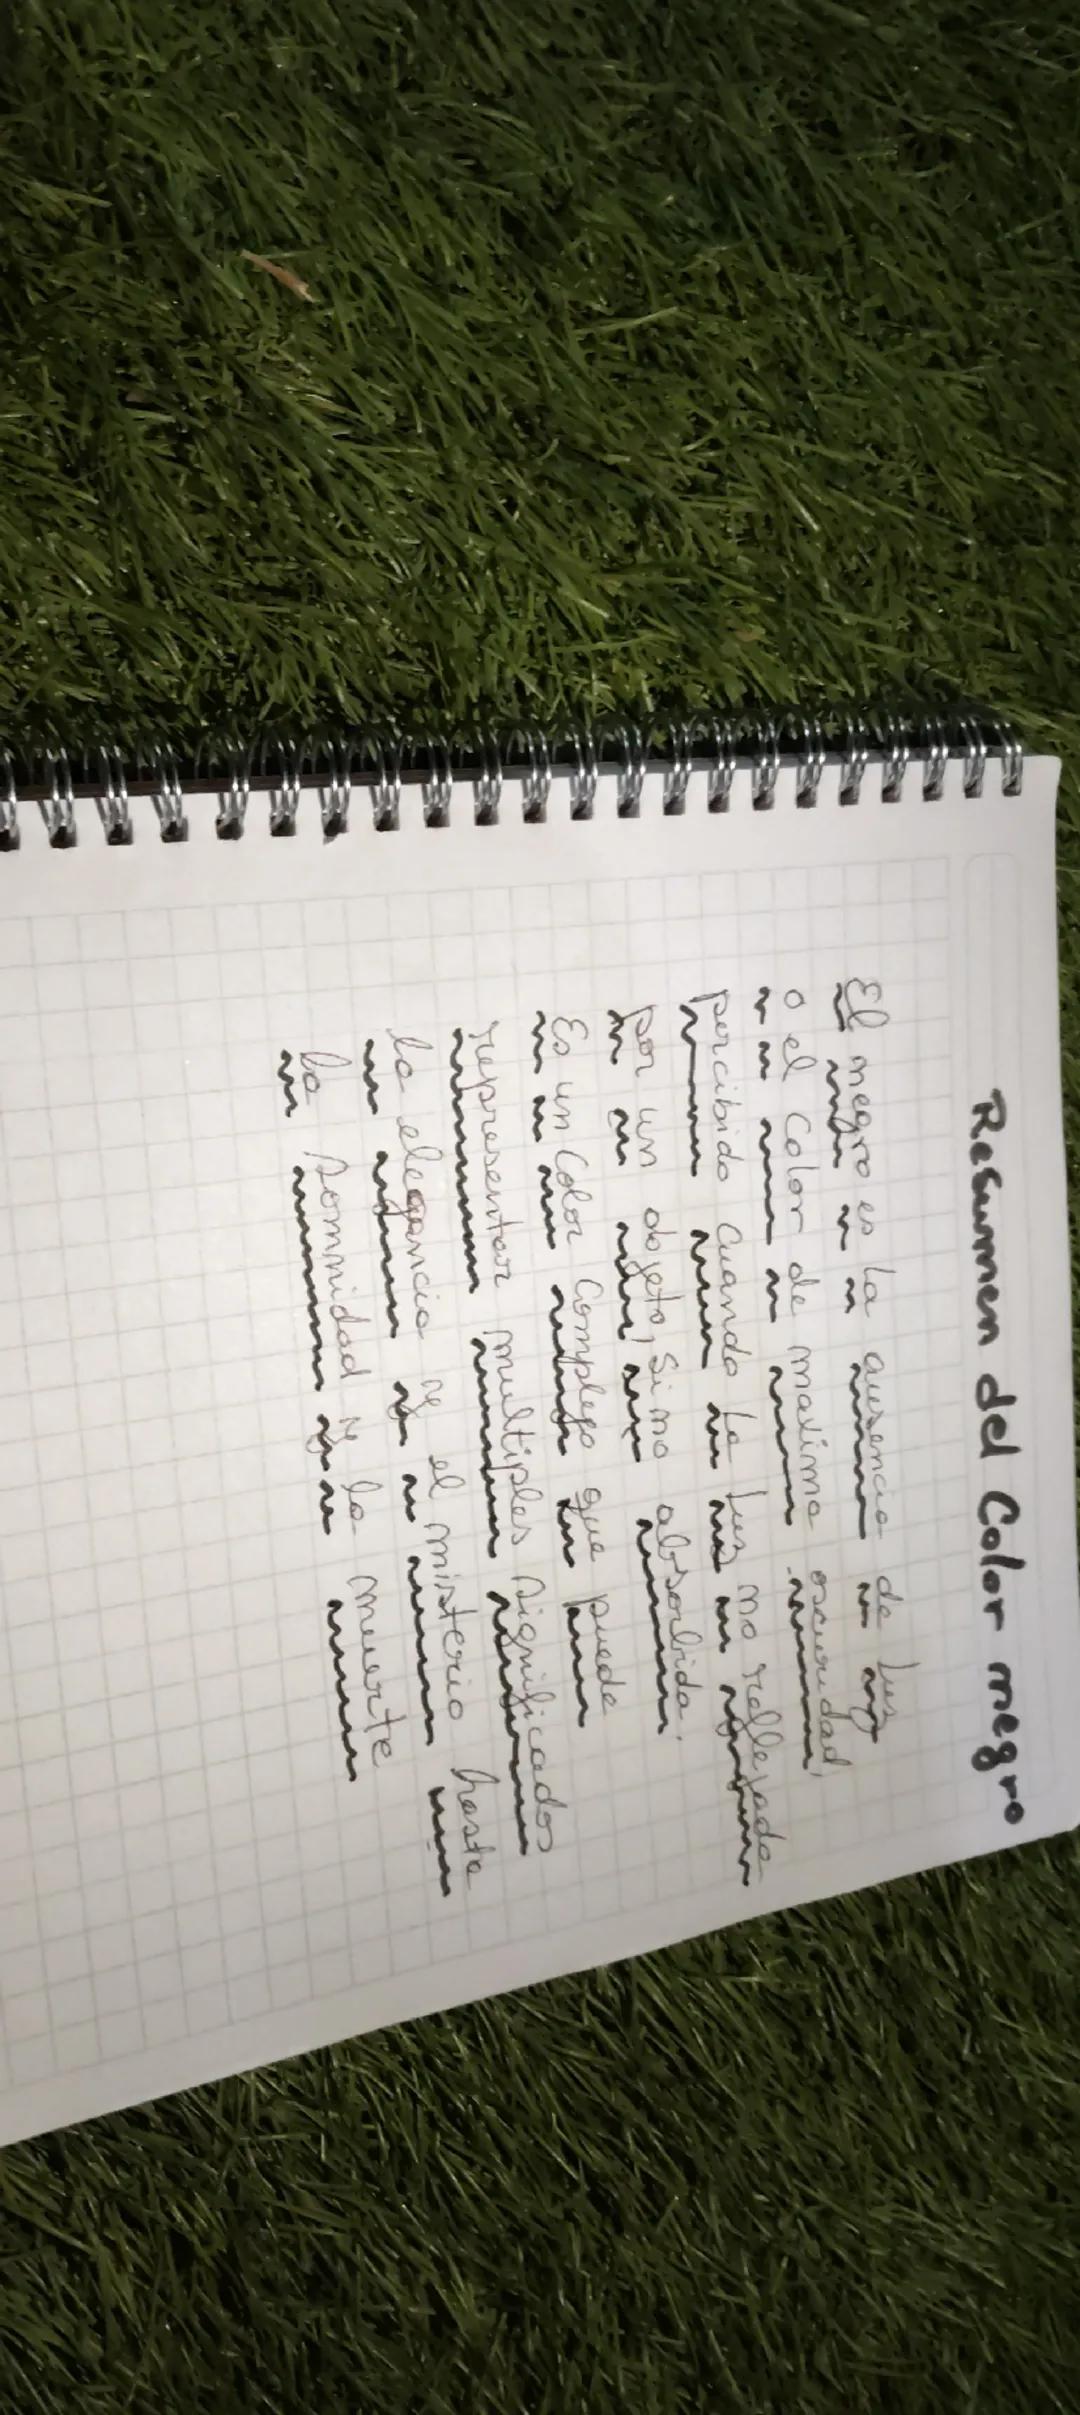 Resumen del Color negro
El negro es La ausencia de luz
o el Color de maxima oscuridad,
percibido Cuando La luz no reflejada
por un objeto, Si no absorbida.
Es un Color Complejo que puede
representar multiples significados
la elegancia y el misterio hasta
la somnidad y la muerte